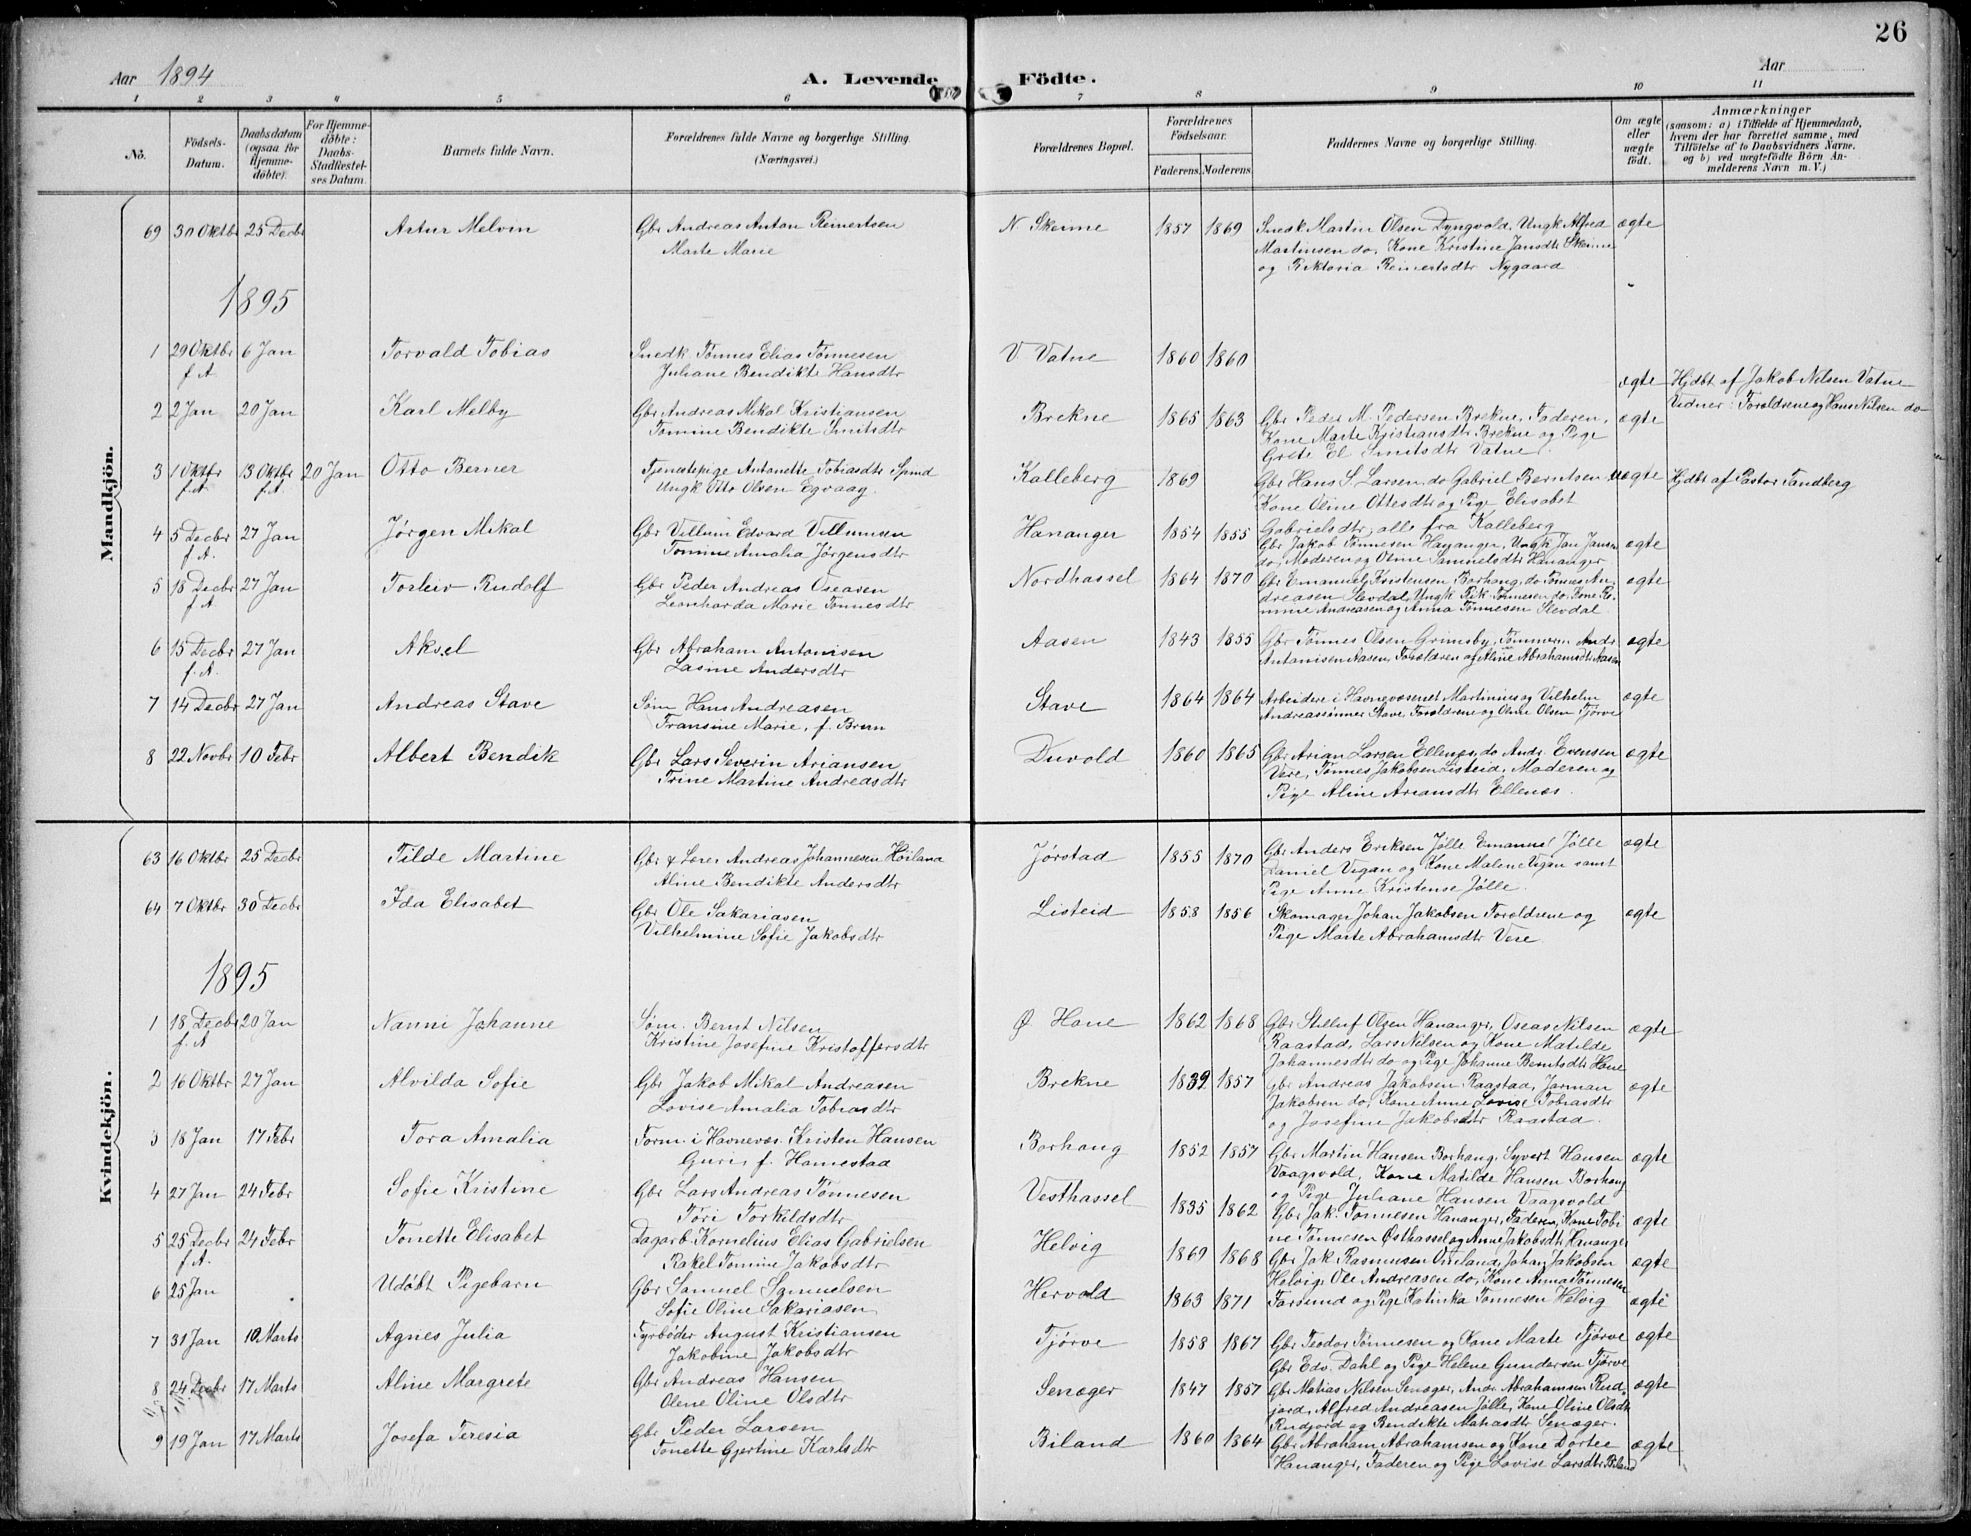 26
Aar 1894
A. Levende Födte.
Aar
1 2 3 4 5 6 7 8 9 10 11
No.
Födsels-Datum.
Daabsdatum (ogsaa for Hjemme-döbte).
For Hjemme-döbte: Daabs-Stadfæstel-ses Datum.
Barnets fulde Navn.
Forældrenes fulde Navne og borgerlige Stilling. (Næringsvei.)
Forældrenes Bopæl.
Forældrenes Födselsaar.
Faderens. Moderens.
Faddernes Navne og borgerlige Stilling.
Om ægte eller uægte födt.
Anmærkninger
(saasom: a) i Tilfælde af Hjemmedaab, hvem der har forrettet samme, med Tilföielse af to Daabsvidners Navne, og b) ved uægtefödte Börn Anmelderens Navn m. V.)
Mandkjön.
69 30 Oktbr 25 Decbr Artur Melvin Gbr Andreas Anton Reinertsen N. Skeime 1857 1869 Snedk Martin Olsen Dyngvold, Ungk Alfred ægte
Marte Marie Martinsen do, Kone Kristine Jansdtr Skeime
og Viktoria Reinertsdtr Nygaard
1895
1 29 Oktbr 6 Jan Torvald Tobias Snedk. Tønnes Elias Tønnesen V. Vatne 1860 1860
f A. Juliane Bendikte Hansdtr ægte Hjdbt af Jakob Nilsen Vatne
Vidner: Foroldrene og Hans Nilsen do
2 2 Jan 20 Jan Karl Melby Gbr Andreas Mikal Kristiansen Brekne 1865 1863 Gbr Peder M. Pedersen Brekne, Faderen, ægte
Tomine Bendikte Smitsdtr Kone Marte Kristiansdtr Brekne og Pige
Grete El. Smitsdtr Vatne.
3 1 Oktbr 13 Oktbr 20 Jan Otto Berner Tjenestepige Antonette Tobiasdtr Spind Kalleberg 1869 Gbr Hans S. Larsen, do Gabriel Berntsen uægte Hjdbt af Pastor Sandberg
f.A. f.A. Ungk Otto Olsen Egvaag. Kone Oline Ottesdtr og Pige Elisabet
Gabrielsdtr, alle fra Kalleberg
4 5 Decbr 27 Jan Jørgen Mikal Gbr Villum Edvard Villumsen Hananger 1854 1855 Gbr Jakob Tønnesen Hananger, Ungk Jan Jansen ægte
f A. Tomine Amalia Jørgensdtr do, Moderen og Oline Samuelsdtr Hananger
5 18 Decbr 27 Jan Torleiv Rudolf Gbr Peder Andreas Osearen Nordhassel 1864 1870 Gbr Emanuel Kristensen Borhaug, do Tønnes An- ægte
f A Leonharda Marie Tønnesdtr dreasen Slevdal, Ungk Rik. Tønnesen do, Kone To-
mine Andreasen og Anna Tønnesen Slevdal
6 15 Decbr 27 Jan Aksel Gbr Abraham Antonisen Aasen 1843 1855 Gbr Tønnes Olsen Grimsby, Tømmerm Andr. ægte
f. A. Lasine Andersdtr Antonisen Aasen, Forældren og Aline Abrahamsdtr Aasen
7 14 Decbr 27 Jan Andreas Stave Søm. Hans Andreasen Stave 1864 1864 Arbeidere i Havnevæsenet Martinius og Vilhelm ægte
Fransine Marie, f. Brun Andreassønner Stave Foroldrene og Oline Olsen Tjørve
8 22 Novbr 10 Febr Albert Bendik Gbr Lars Severin Ariansen Duvold 1860 1865 Gbr Arian Larsen Ellenes, do Andr. Evensen ægte
Trine Martine Andreasdtr Vere, Tønnes Jakobsen Listeid, Moderen og
Pige Aline Ariansdtr Ellenæs.
Kvindekjön.
63 16 Oktbr 25 Decbr Tilde Martine Gbr & Lærer Andreas Johannesen Høiland Jørstad 1855 1870 Gbr Anders Eriksen Jølle Emanuel Jølle ægte
Aline Bendikte Andersdtr Daniel Vigan og Kone Malene Vigan samt
Pige Anne Kristense Jølle.
64 7 Oktbr 30 Decbr Ida Elisabet Gbr Ole Sakariasen Listeid 1858 1856 Skomager Johan Jakobsen Foroldrene og ægte
Vilhelmine Sofie Jakobsdtr Pige Marte Abrahamsdtr Vere
1895
1 18 Decbr 20 Jan Nanni Johanne Søm. Bernt Nilsen Ø Hane 1862 1868 Gbr Stilluf Olsen Hananger, Oseas Nilsen ægte
f. A Kristine Josefine Kristoffersdtr Raastad, Lars Nilsen og Kone Matilde
Johannesdtr do og Pige Johanne Berntsdtr Hane
2 16 Oktbr 27 Jan Alvilda Sofie Gbr Jakob Mikal Andreasen Brekne 1839 1857 Gbr Andreas Jakobsen Raastad, Jarman ægte
Lovise Amalia Tobiasdtr Jakobsen do, Kone Anne Lovise Tobiasdtr
og Josefine Jakobsdtr Raastad.
3 18 Jan 17 Febr Tora Amalia Form. i Havnevæs. Kristen Hansen Borhaug 1852 1857 Gbr Martin Hansen Borhaug, Syvert Hansen ægte
Guri, f. Hamestad Vaagsvold, Kone Matilde Hansen Borhaug
og Pige Juliane Hansen Vaagsvold
4 27 Jan 24 Febr Sofie Kristine Gbr Lars Andreas Tønnesen Vesthassel 1835 1862 Gbr Jak. Tønnesen Hananger, Faderen, Kone Tobi ægte
Tøri Torkildsdtr ne Tønnesen Østhassel og Anne Jakobsdtr Hananger
5 25 Decbr 24 Febr Tonette Elisabet Dagarb. Kornelius Elias Gabrielsen Helvig 1869 1868 Gbr Jak Rasmussen Omland, Johan Jakobsen ægte
f A. Rakel Tomine Jakobsdtr Helvig, Ole Andreasen do, Kone Anna Tønnesen
6 25 Jan Udøbt Pigebarn Gbr Samuel Samuelsen Hervold 1863 1871 Farsund og Pige Katinka Tønnesen Helvig ægte
Sofie Oline Sakariasen
7 31 Jan 10 Marts Agnes Julia Fyrbøder August Kristiansen Tjørve 1858 1867 Gbr Teodor Tønnesen og Kone Marte Tjørve ægte
Jakobine Jakobsdtr Gbr Edv. Dahl og Pige Helene Gundersen Tjørve
8 24 Decbr 17 Marts Aline Margrete Gbr Andreas Hansen Senæger 1847 1857 Gbr Matias Nilsen Senæger, Andr. Abrahamsen Rud- ægte
Olene Oline Olsdtr jord, Alfred Andreasen Jølle, Kone Oline Olsdtr
Rudjord og Bendikte Matiasdtr Senæger.
9 19 Jan 17 Marts Josefa Teresia Gbr Peder Larsen Biland 1860 1864 Gbr Abraham Abrahamsen og Kone Dortee ægte
Tonette Gjertine Karlsdtr Hananger, Faderen og Pige Lovise Larsdtr Biland